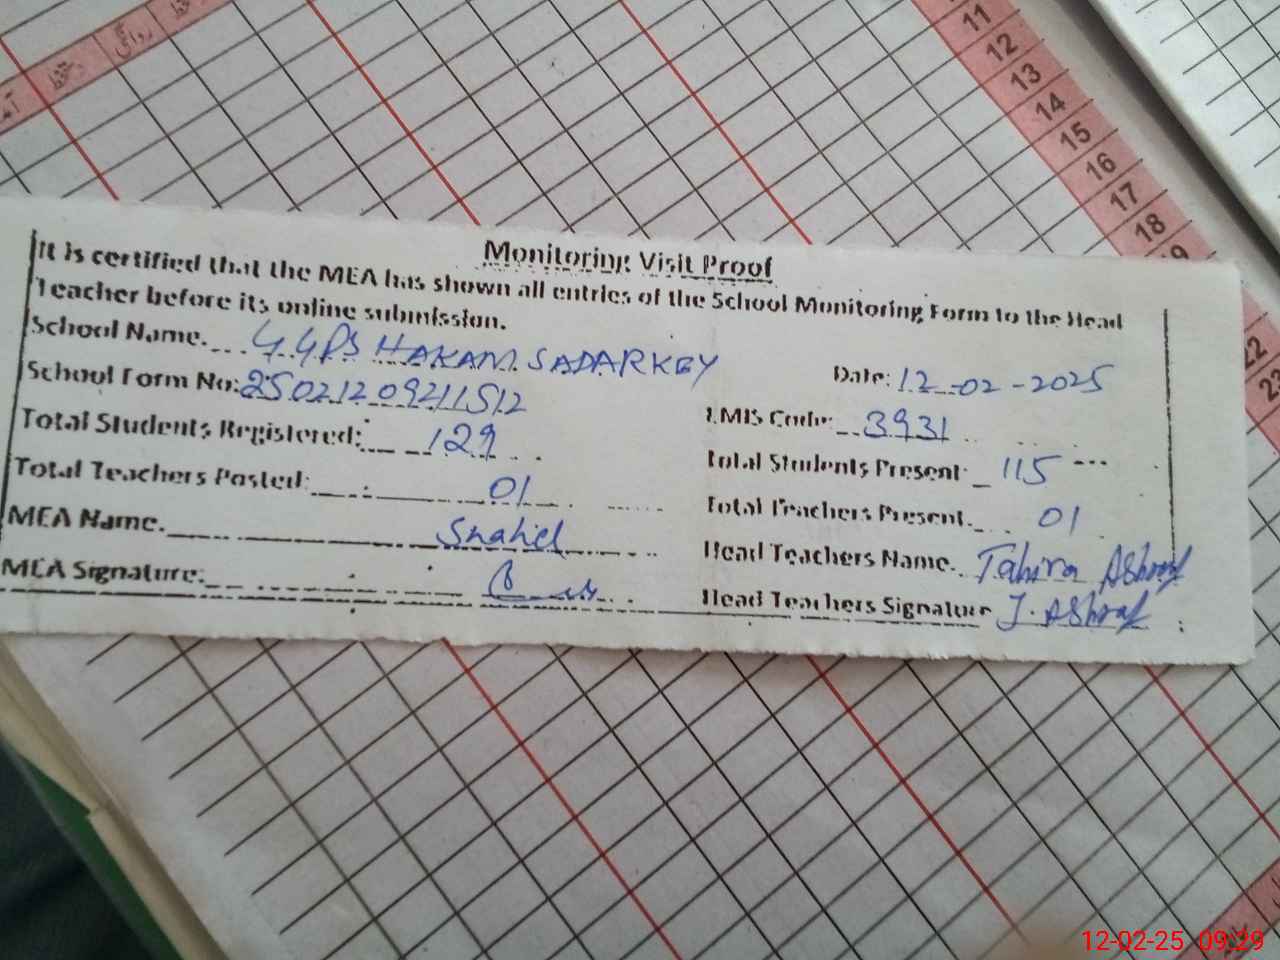 روانگی
دستخط
11
12
13
14
15
16
17
18
Monitoring Visit Proof
It is certified that the MEA has shown all entries of the School Monitoring Form to the Head
Teacher before its online submission.
School Name. GGPS HAKAM SADARKEY
Date: 12-02-2025
School Form No: 25021209211512
EMIS Code: 3931
Total Students Registered: 129
Total Students Present: 115
Total Teachers Posted: 01
Total Teachers Present. 01
MEA Name. Shahel
Head Teachers Name. Tahira Ashraf
MEA Signature:
Head Teachers Signature T. Ashraf
22
23
12-02-25 09:29